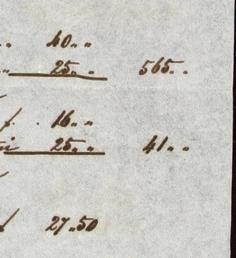 40 " "
25 " " 565 " "
f. 16 " "
25 " " 41 " "
f 27.50